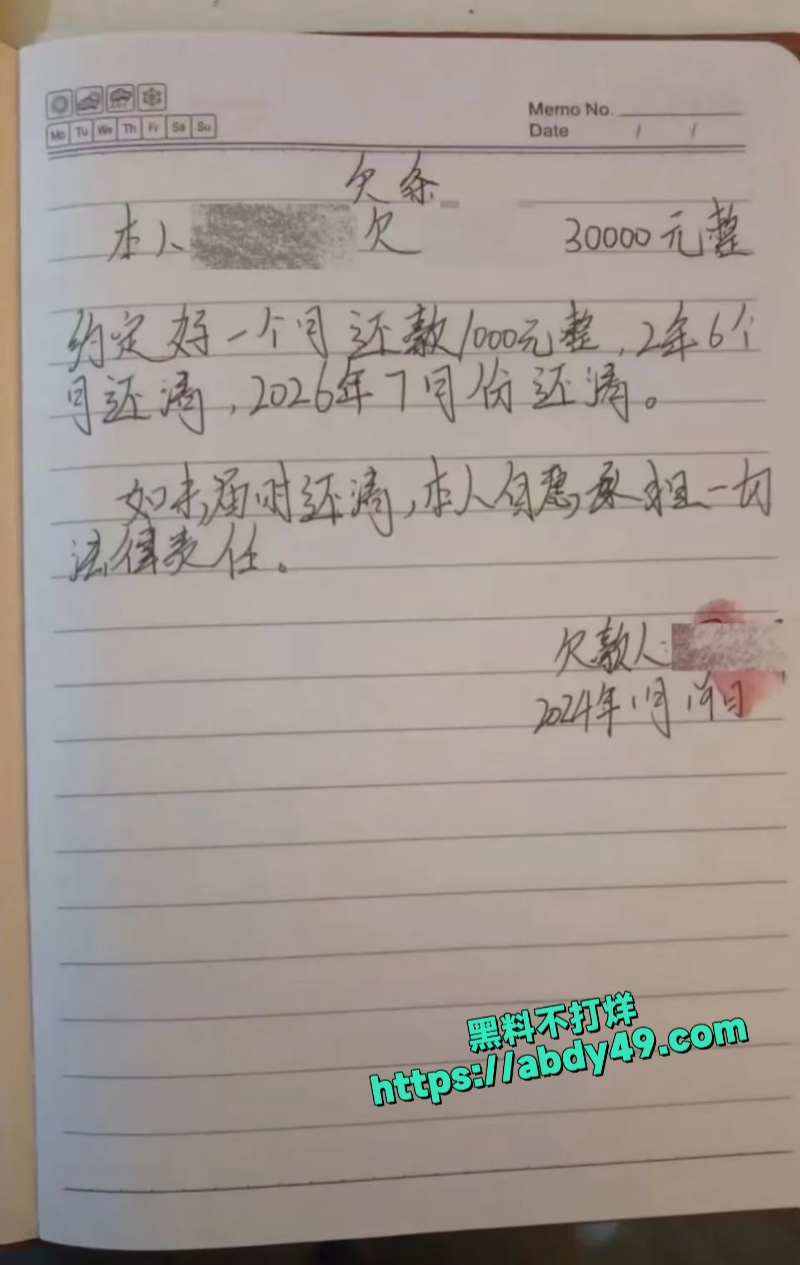 Mo Tu We Th Fr Sa Su
Memo No.
Date / /
欠条
本人 欠 30000元整
约定好一个月还款1000元整,2年6个
月还清,2026年7月份还清。
如未届时还清,本人自愿承担一切
法律责任。
欠款人:
2024年1月19日
黑料不打烊
https://abdy49.com